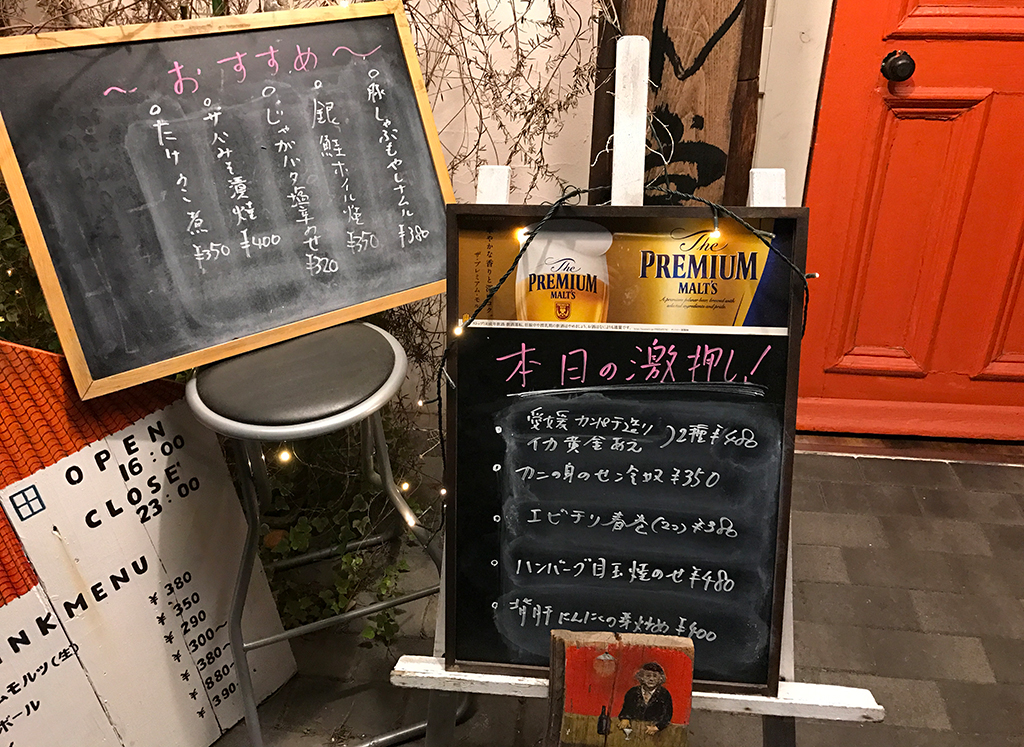 〜おすすめ〜
○豚しゃぶもやしナムル ¥380
○銀鮭ホイル焼 ¥350
○じゃがバタ塩辛のせ ¥320
○サバみそ漬焼 ¥400
○たけのこ煮 ¥350
The
PREMIUM
MALT'S
The
PREMIUM
MALT'S
本日の激押し!
愛媛 カンパチ造り
イカ黄金あえ
)2種¥480
カニの身のせ冷奴 ¥350
エビチリ春巻(2コ) ¥380
ハンバーグ目玉焼のせ ¥480
背肝にんにくの芽炒め ¥400
OPEN
16:00
CLOSE
23:00
NKMENU
¥380
¥350
¥290
¥300〜
¥380〜
¥880〜
¥390
ムモルツ(生)
ボール